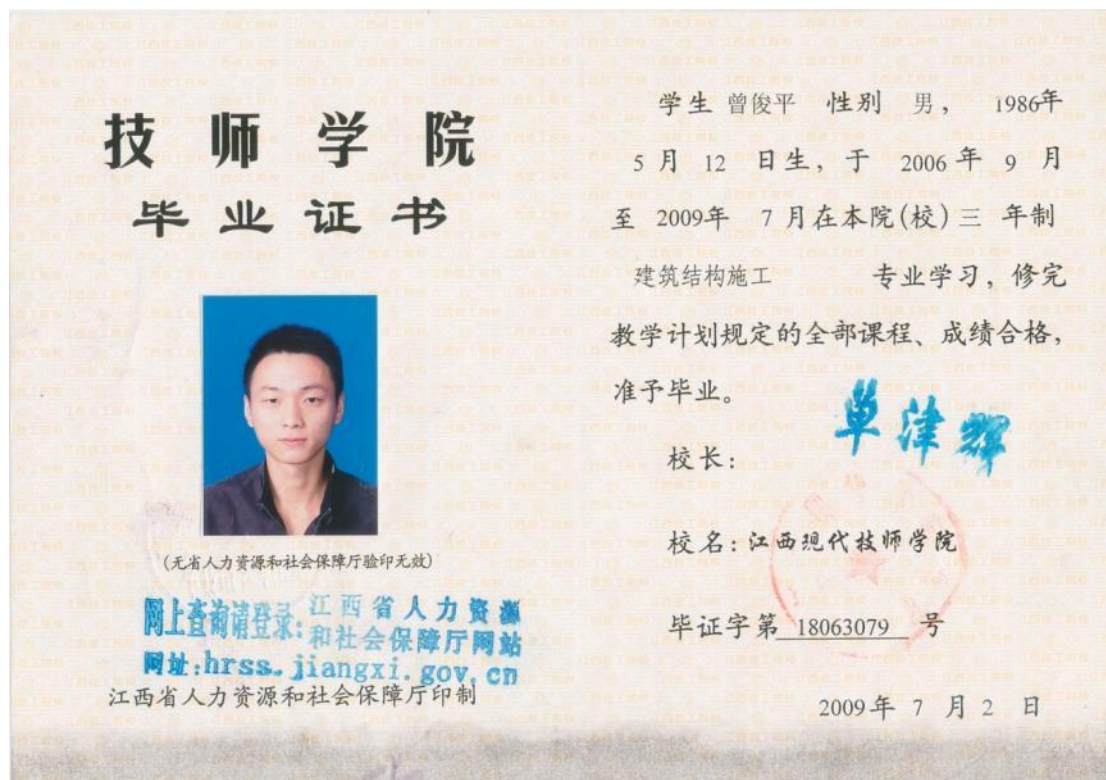 技师学院
毕业证书
(无省人力资源和社会保障厅验印无效)
网上查询请登录:江西省人力资源
和社会保障厅网站
网址:hrss.jiangxi.gov.cn
江西省人力资源和社会保障厅印制
学生 曾俊平 性别 男, 1986年
5 月 12 日生,于 2006 年 9 月
至 2009年 7 月在本院(校)三 年制
建筑结构施工 专业学习,修完
教学计划规定的全部课程、成绩合格,
准予毕业。
单津辉
校长:
校名:江西现代技师学院
毕证字第 18063079 号
2009年 7 月 2 日